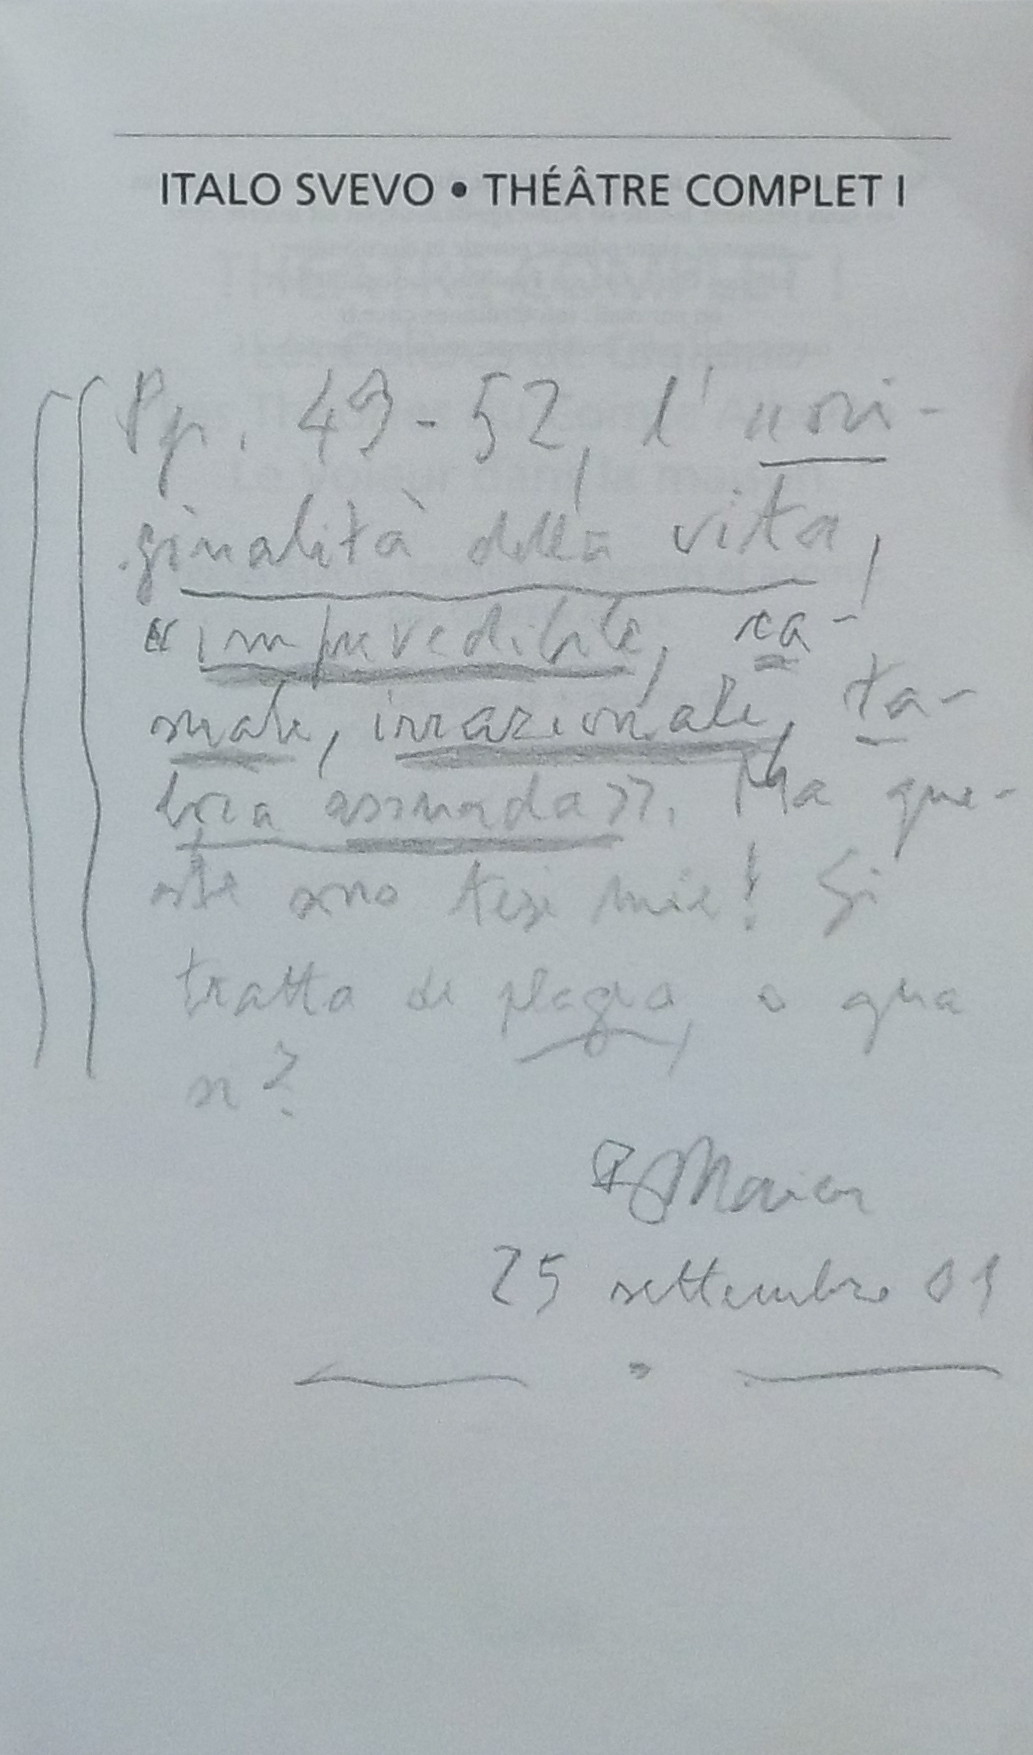 ITALO SVEVO • THÉÂTRE COMPLET I
Pp. 49-52, l'"ori-
ginalità della vita,
"imprevedibile, ca-
suale, irrazionale, ta-
bula
Ma que-
ste sono tesi mie! Si
tratta di plagio, o qua
si?
25 settembre 09